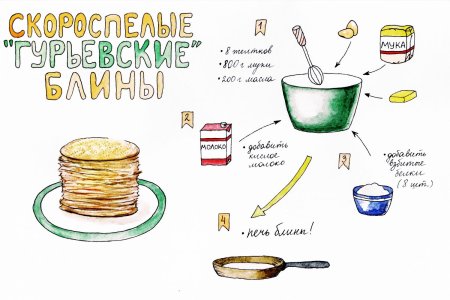 СКОРОСПЕЛЫЕ
"ГУРЬЕВСКИЕ"
БЛИНЫ
1
• 8 желтков
• 800 г муки
• 200 г масла
МУКА
2
МОЛОКО
• добавить
кислое
молоко
3
• добавить
взбитые
белки
(8 шт.)
4
• печь блины!